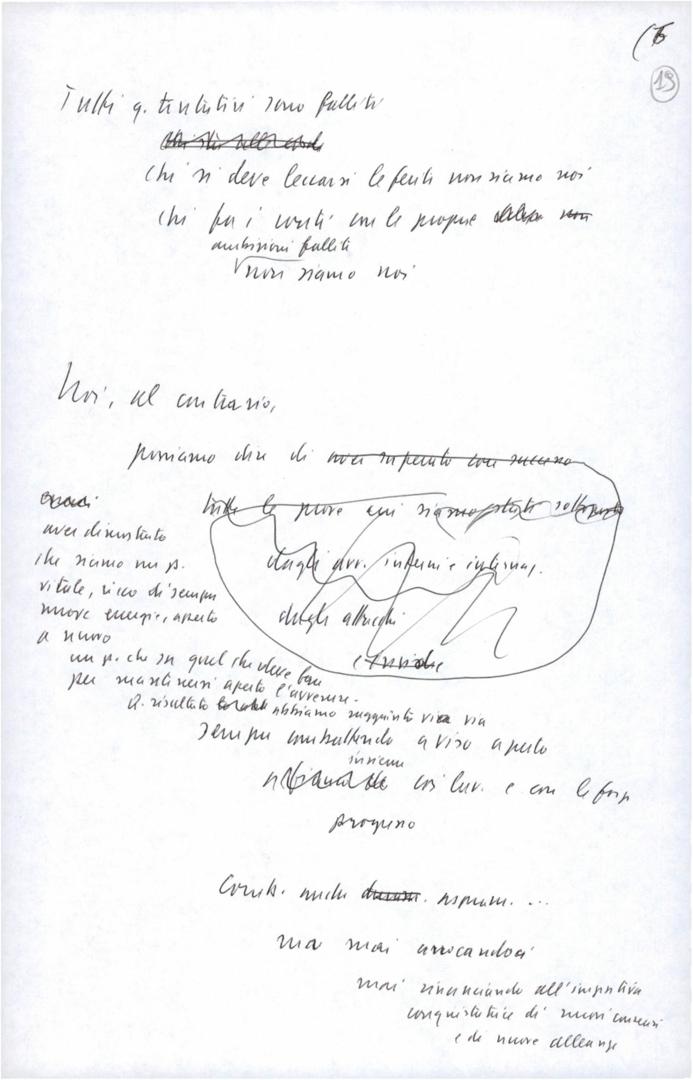 (6
19
Tutti q. tentativi sono falliti
Chi si deve leccarsi le ferite non siamo noi
chi fa i conti con le proprie non
ambizioni fallite
non siamo noi
Noi, al contrario,
possiamo dire di aver superato con successo
tutte le prove cui siamo stati sottoposti
dagli avv. interni e internaz.
dagli attacchi
e
aver dimostrato
che siamo un p.
vitale, ricco di sempre
nuove energie, aperto
a nuovo
un p. che sa quel che deve fare
per mantenersi aperto l'avvenire.
Q. risultato abbiamo raggiunto via via
sempre combattendo a viso aperto
insieme
coi lav. e con le forze
progresso
Comb. anche
ma mai arroccandoci
mai rinunciando all'iniziativa
conquistatrice di nuovi consensi
e di nuove alleanze